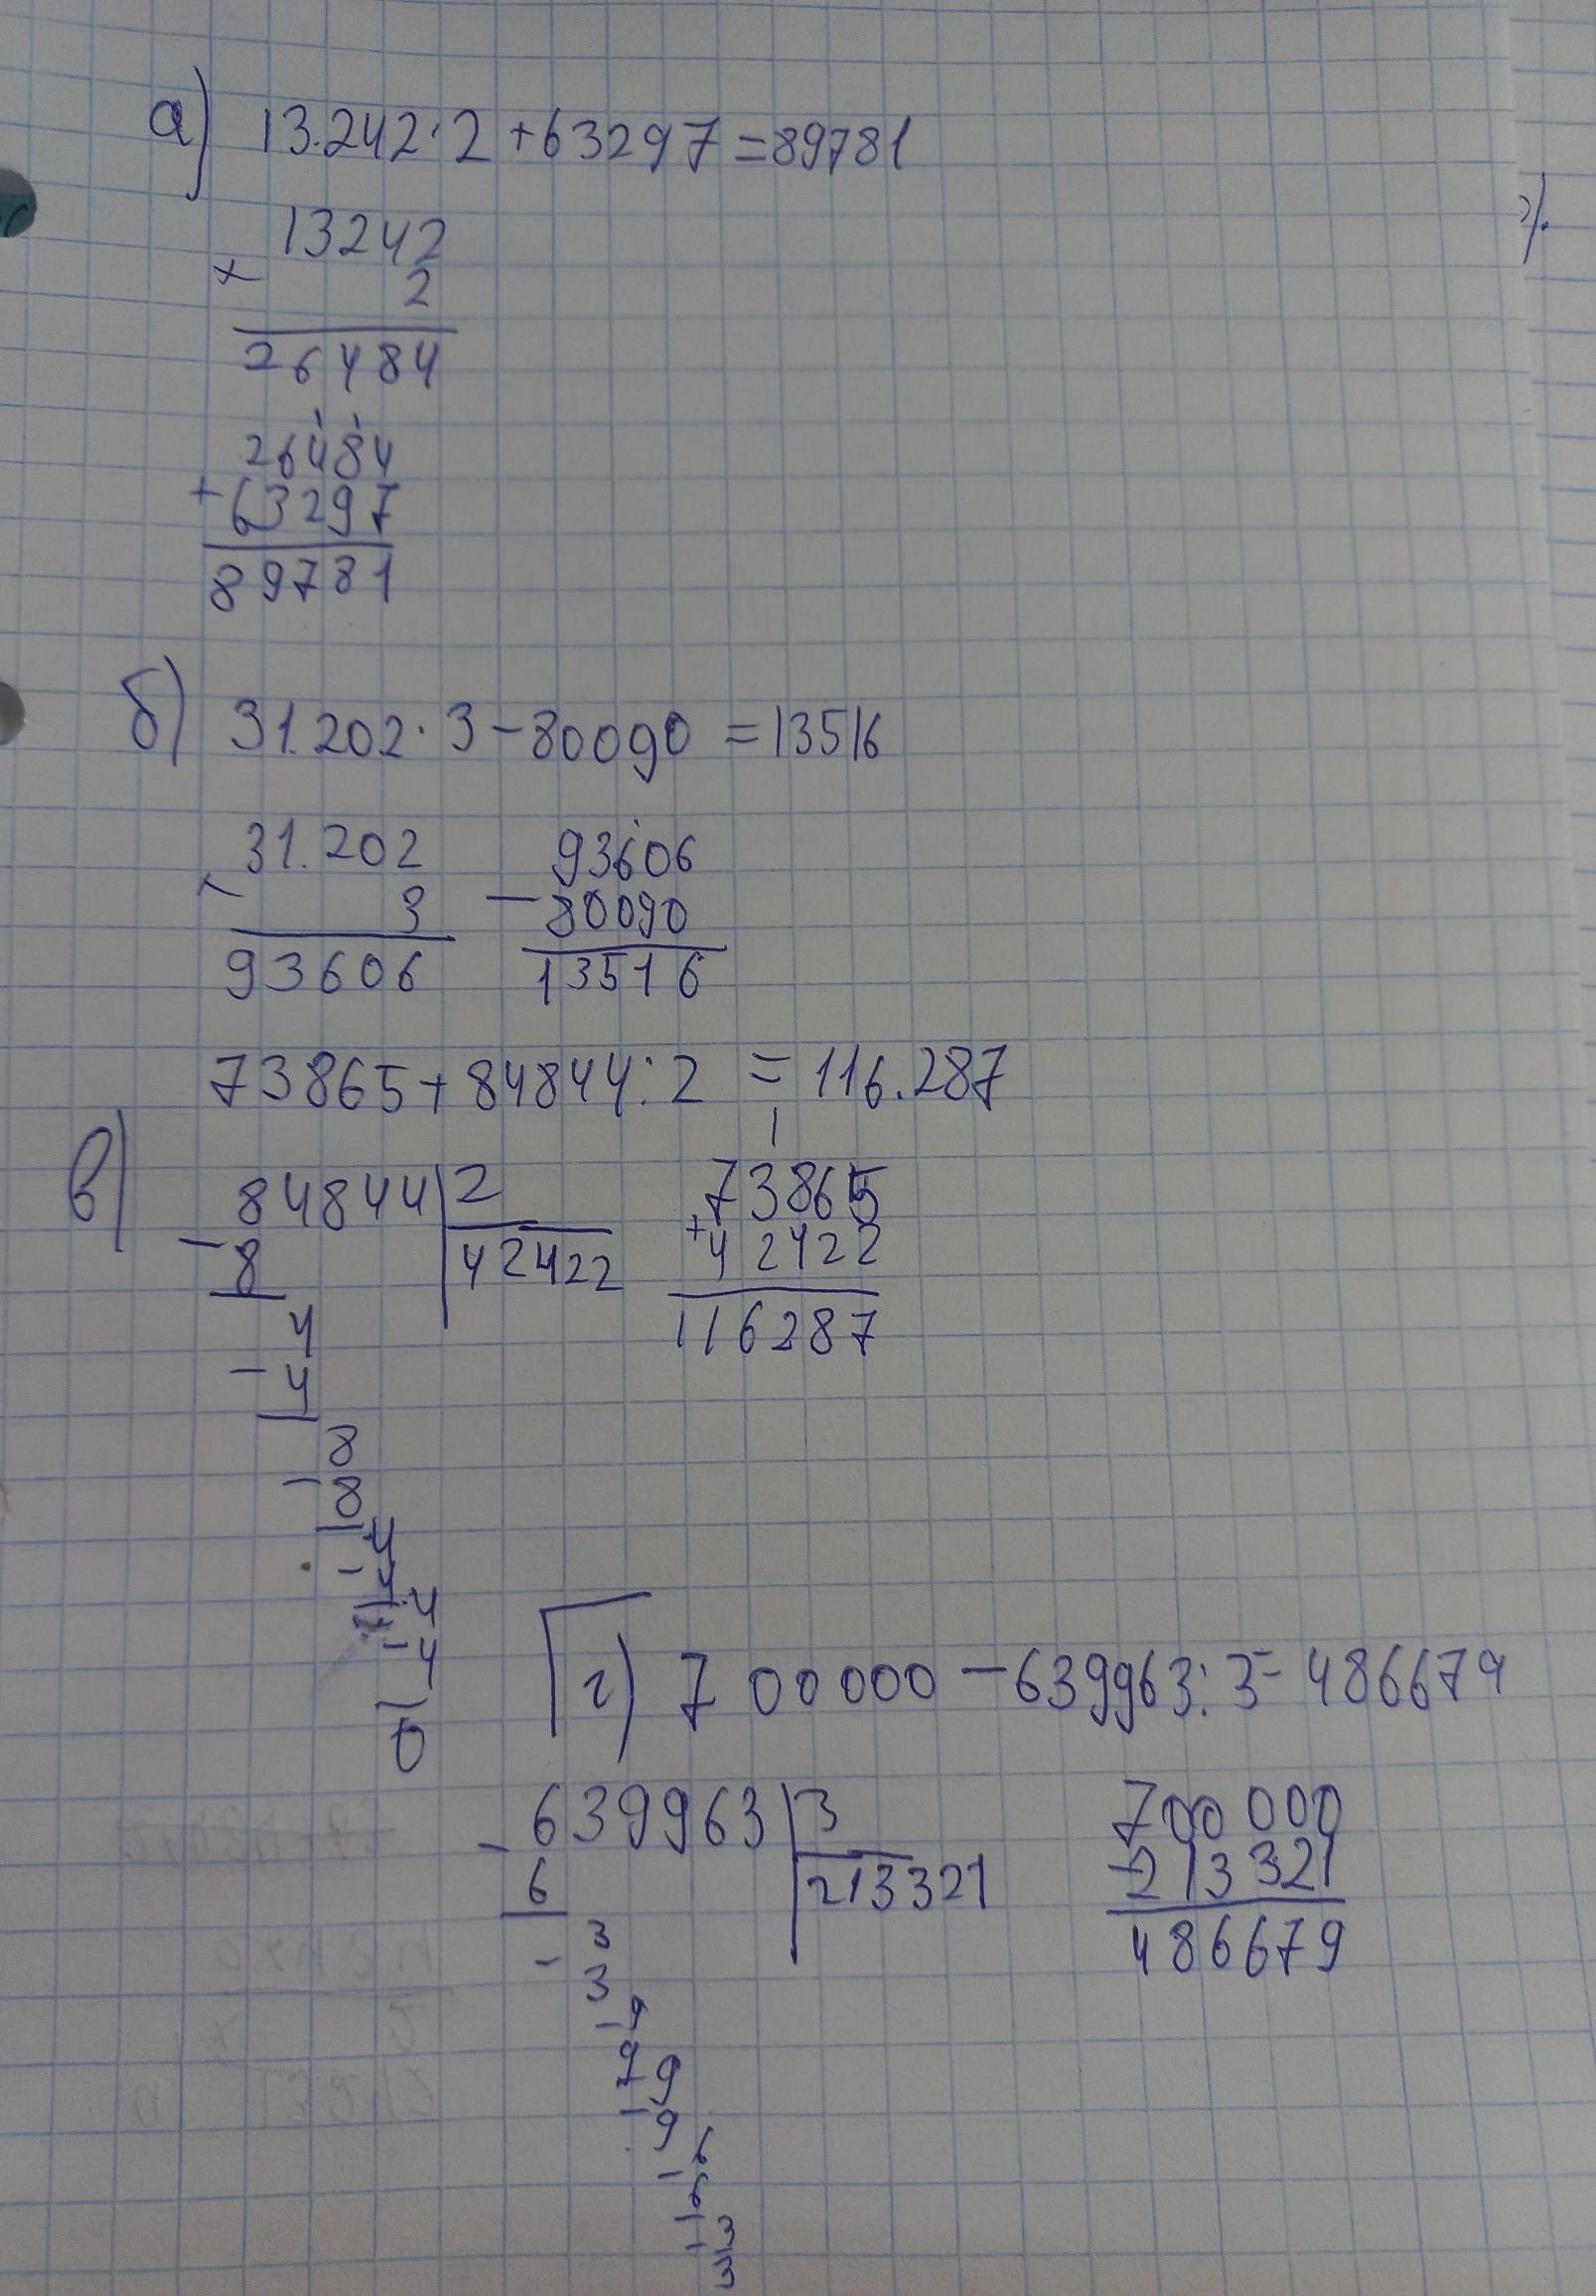 а) 13.242·2+63297=89781
13242
× 2
26484
26484
+63297
89781
б) 31.202·3-80090=13516
31.202
× 3
93606
93606
-80090
13516
73865+84844:2=116.287
в)
84844 2
-8 42422
4
-4
8
-8
4
-4
4
-4
0
1
73865
+42422
116287
г) 700000-639963:3=486679
639963 3
-6 213321
3
-3
9
-9
9
-9
6
-6
3
-3
700000
-213321
486679